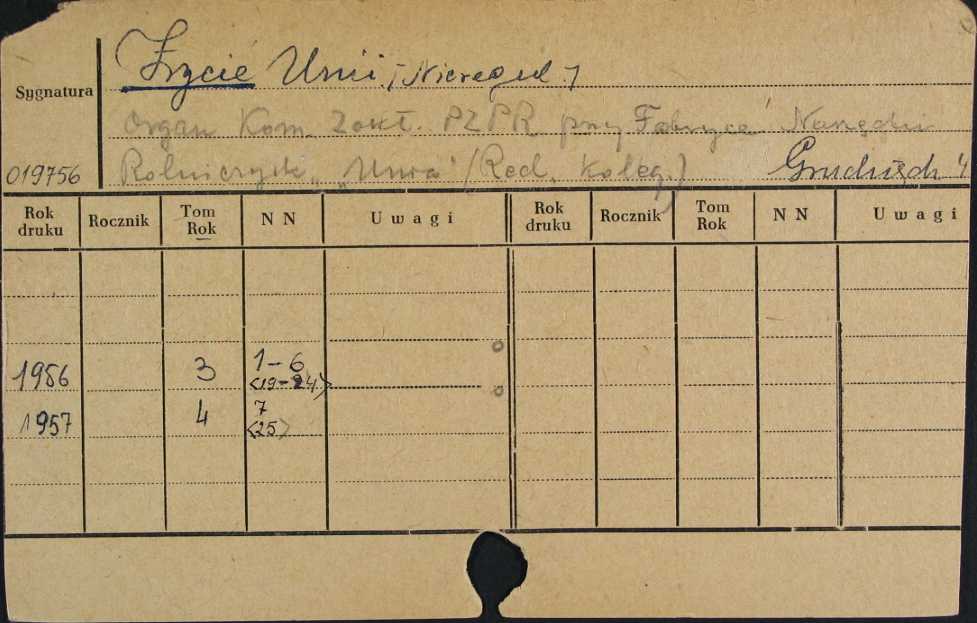 Życie Unii [Nieregul.]
Sygnatura
Organ Kom. Zakł. PZPR przy Fabryce Narzędzi
019756 Rolniczych „Unia" (Red. Koleg.) Grudziądz 4
Rok druku Rocznik Tom Rok N N Uwagi Rok druku Rocznik Tom Rok N N Uwagi
1956 3 1-6
<19-24>
1957 4 7
<25>